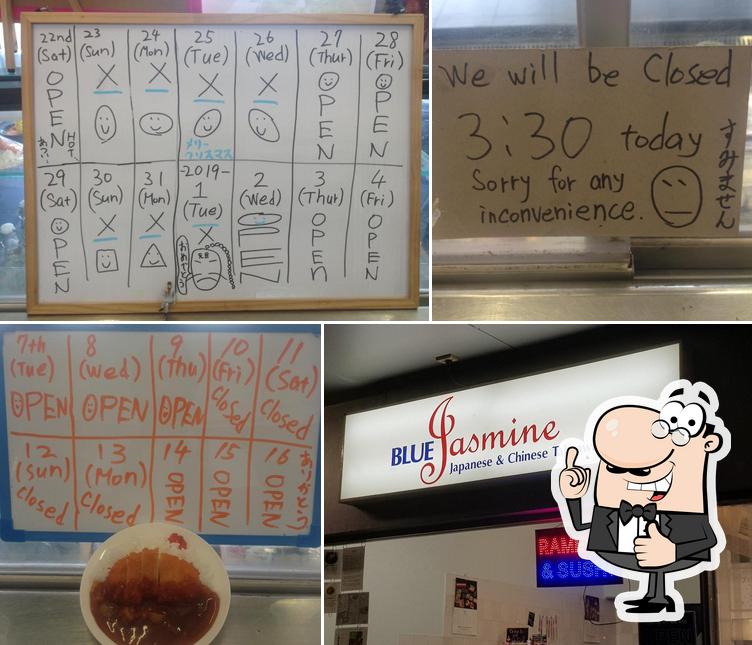 22nd (Sat) OPEN
23 (Sun) X
24 (Mon) X
25 (Tue) X メリークリスマス
26 (Wed) X
27 (Thur) OPEN
28 (Fri) OPEN
29 (Sat) OPEN
30 (Sun) X
31 (Mon) X
-2019-
1 (Tue) X
2 (Wed) OPEN
3 (Thur) OPEn
4 (Fri) OPEN
We will be Closed
3:30 today
Sorry for any
inconvenience.
すみません
7th (Tue) OPEN
8 (wed) OPEN
9 (Thu) OPEN
10 (Fri) Closed
11 (Sat) Closed
12 (Sun) Closed
13 (Mon) Closed
14 OPEN
15 OPEN
16 OPEN
ありがとう
BLUE Jasmine
Japanese & Chinese T
RAM
& SUSHI